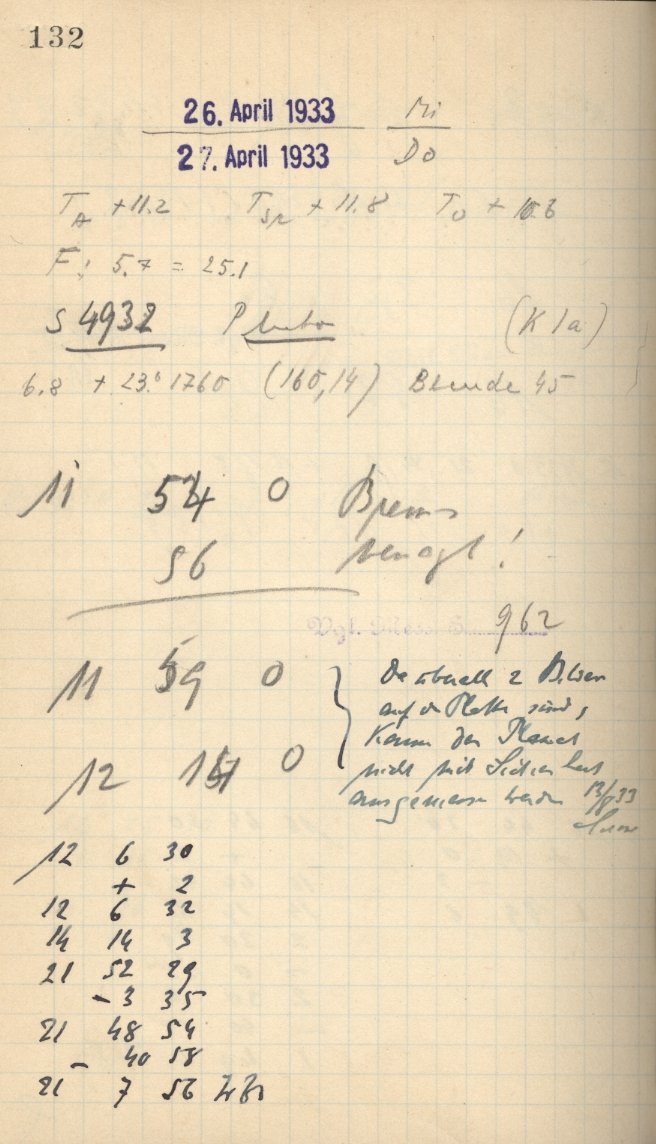 132
26. April 1933 Mi
27. April 1933 Do
T_A +11.2 T_Sp +11.8 T_O + 10.8
F: 5.7 = 25.1
S 4932 Pluto (Kla)
6.8 + 23.° 1760 (160,14) Blende 45
11 54 0 Brems
56 versagt!
Vgl. S. 962
11 59 0
12 14 0
Da überall 2 Bilder
auf der Platte sind,
kann der Planet
nicht mit Sicherheit
ausgemessen werden 13/ 33
12 6 30
+ 2
12 6 32
14 14 3
21 52 29
- 3 35
21 48 54
- 40 58
21 7 56